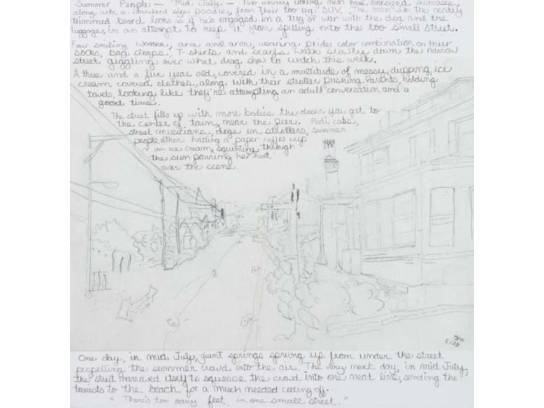 Summer People - "Mid July" - Two
along with a
trimmed beard looks as if he's engaged in a tug of war with the dog and the
luggage, in an attempt to keep it from spilling into the too small street.
Four smiling women, arm and arm, wearing pride color combination on their
socks, bag straps, T-shirts and scarfs walk swiftly down the narrow
street giggling over what drag show to watch this week.
A three and a five year old, covered in a multitude of messy, dripping ice
cream covered clothes, along with their stroller pushing parents, holding
towels, looking like they're attempting an adult conversation and a
good time.
The street fills up with more bodies the closer you get to
the center of town, near the pier. Pedi cabs,
street musicians, dogs in strollers, summer
people holding a paper cup
ice cream, squinting through
the sun pouring her heat
over the scene.
One day, in mid July, giant springs sprung up from under the street
propelling the summer crowd into the air. The very next day, in mid July,
the street itself to squeeze the crowd into one neat line, sending the
tourists to the beach for a much needed cooling off.
"There's too many feet in one small street."